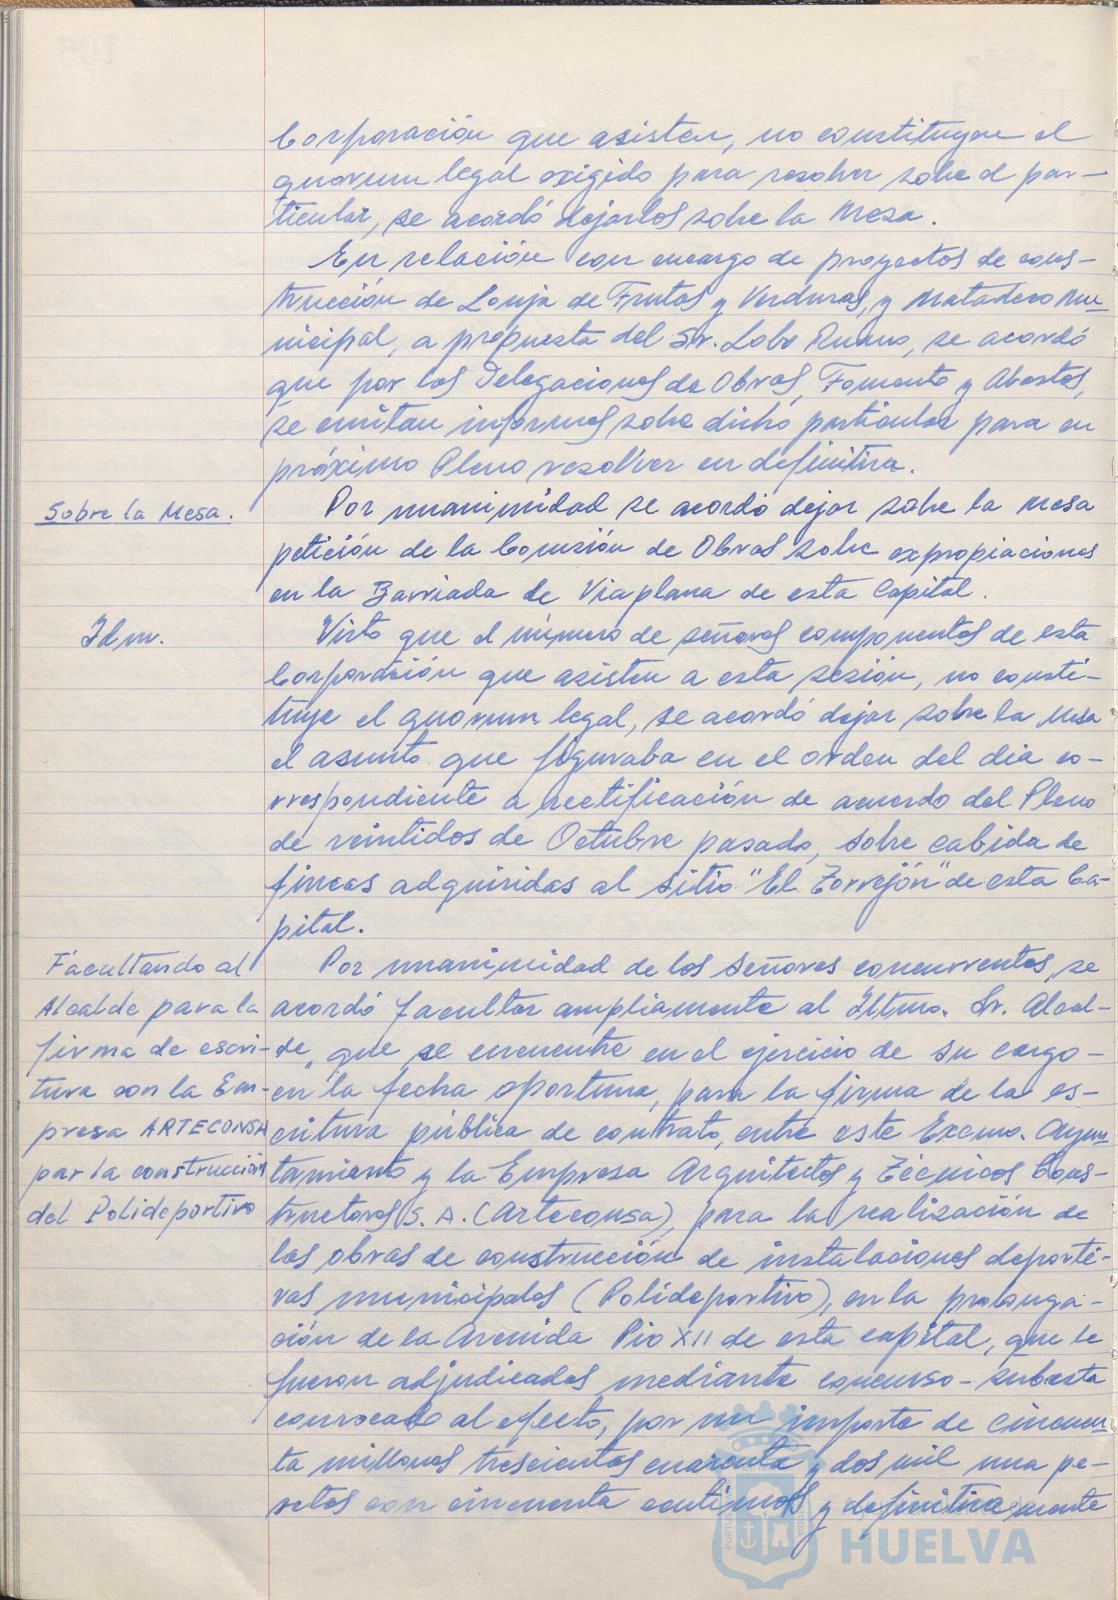 Corporación que asisten, no constituyen el
quorum legal exigido para resolver sobre el par-
ticular, se acordó dejarlos sobre la Mesa.
En relación con encargo de proyectos de cons-
trucción de Lonja de Frutas y Verduras, y Matadero Mu-
nicipal, a propuesta del Sr. Lobo Ruano, se acordó
que por las Delegaciones de Obras, Fomento y Abastos,
se emitan informes sobre dicho particular para en
próximo Pleno resolver en definitiva.
Sobre la Mesa.
Por unanimidad se acordó dejar sobre la Mesa
petición de la Comisión de Obras sobre expropiaciones
en la Barriada de Viaplana de esta Capital.
Idm.
Visto que el número de señores componentes de esta
Corporación que asisten a esta sesión, no consti-
tuye el quorum legal, se acordó dejar sobre la Mesa
el asunto que figuraba en el orden del dia co-
rrespondiente a rectificación de acuerdo del Pleno
de veintidos de Octubre pasado, sobre cabida de
fincas adquiridas al sitio "El Torrejón" de esta Ca-
pital.
Facultando al
Alcalde para la
firma de escri-
tura con la Em-
presa ARTECONSA
par la construcción
del Polideportivo
Por unanimidad de los Señores concurrentes, se
acordó facultar ampliamente al Iltmo. Sr. Alcal-
de, que se encuentre en el ejercicio de su cargo-
en la fecha oportuna, para la firma de la es-
critura pública de contrato, entre este Excmo. Ayun
tamiento y la Empresa Arquitectos y Técnicos Cons-
tructores S. A. (Arteconsa), para la realización de
las obras de construcción de instalaciones deporti-
vas municipales (Polideportivo), en la prolonga-
ción de la Avenida Pio XII de esta capital, que le
fueron adjudicadas mediante concurso-subasta
convocado al efecto, por un importe de cincuen
ta millones trescientas cuarenta y dos mil una pe-
setas con cincuenta centimos y definitivamente
HUELVA